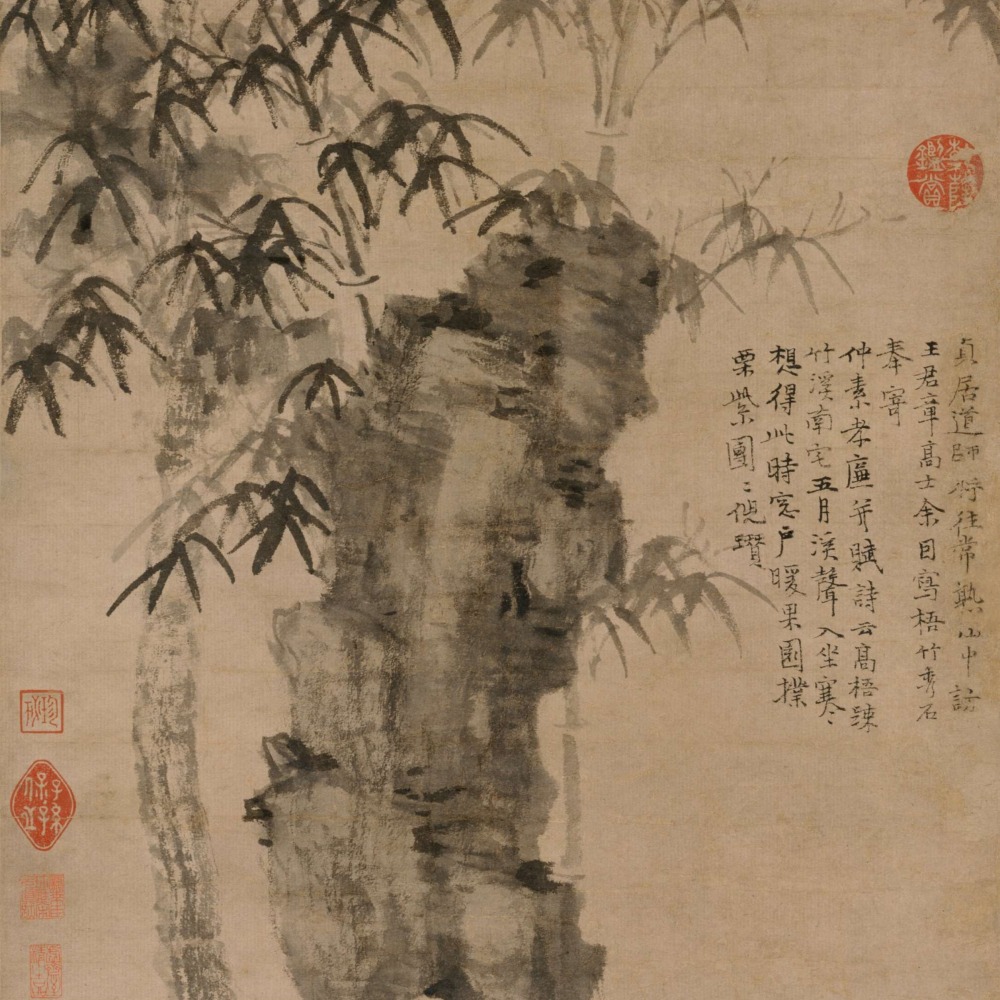 貞居道師將往常熟山中訪
王君章高士余因寫梧竹秀石
奉寄
仲素孝廉并賦詩云高梧踈
竹溪南宅五月溪聲入坐寒
想得此時窓户暖果園撲
栗紫團〻倪瓚